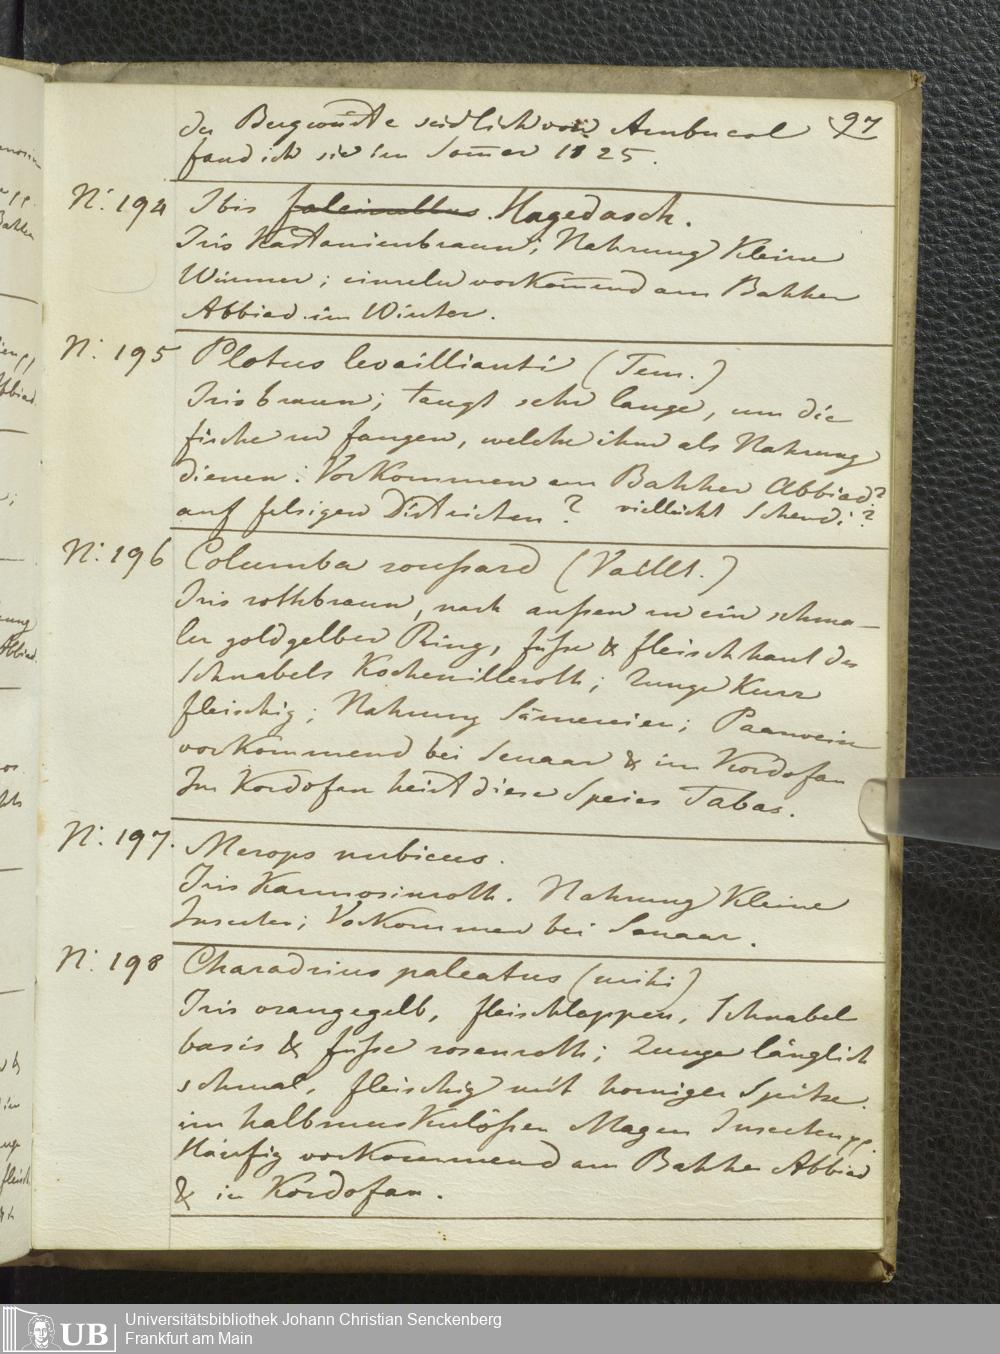 97
der Bergwüste südlich von Ambucol
fand ich sie im Som̄er 1825.
N: 194 Ibis falcinellus. Hagedasch.
Iris Kastanienbraun; Nahrung Kleine
Würmer; einzeln vorkom̄end am Bahher
Abbiad im Winter.
N: 195 Plotus levaillianti (Tem.)
Iris braun; taugt sehr lange, um die
fische zu fangen, welche ihm als Nahrung
dienen: Vorkommen am Bahher Abbiad?
auf felsigen Districten? vielleicht Schendi?
N: 196 Columba roussard (Vaillt.)
Iris rothbraun, nach aussen zu ein schma-
ler goldgelber Ring, füsse & fleischhaut des
Schnabels Kochenilleroth; Zunge Kurz
fleischig; Nahrung Sämereien; Paarweise
vorkommend bei Senaar & im Kordofan
Im Kordofan heist diese Speies Tabas.
N: 197. Merops nubicus.
Iris Karmosinroth. Nahrung Kleine
Insecten; Vorkommen bei Senaar.
N: 198 Charadrius paleatus (mihi)
Iris orangegelb, fleischlappen, Schnabel
basis & füsse rosenroth; Zunge länglich
schmal, fleischig mit horniger Spitze.
im halbmuskulösen Magen Insecten pp.
Häufig vorkommend am Bahher Abbiad
& in Kordofan.
UB Universitätsbibliothek Johann Christian Senckenberg
Frankfurt am Main